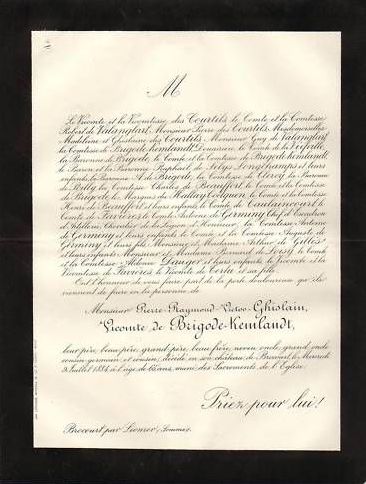 M
Le Vicomte et la Vicomtesse des Courtils, le Comte et la Comtesse
Robert de Valanglart, Monsieur Pierre des Courtils, Mesdemoiselles
Madeleine et Ghislaine des Courtils, Monsieur Guy de Valanglart,
la Comtesse de Brigode-Kemlandt, Douairière, le Comte de la
la Baronne de Brigode, le Comte et la Comtesse de Brigode-Kemlandt,
le Baron et la Baronne Raphaël de Selys Longchamps et leurs
enfants, la Baronne de Brigode, la Comtesse de Clercy, la Baronne
de la Comtesse Charles de Beauffort, le Comte et la Comtesse
de Brigode, la Marquise du Hallay-Coëtquen, le Comte et la Comtesse
Henri de Beauffort et leurs enfants, le Comte de Caulaincourt, le
Comte de le Comte Antoine de Germiny, Chef d'Escadron
d'Artillerie, Chevalier de la Légion d'Honneur, la Comtesse Antoine
de Germiny et leurs enfants, le Comte et la Comtesse Auguste de
Germiny et leurs fils, Monsieur et Madame Arthur de Gillès
et leurs enfants, Monsieur et Madame Bernard de Loisy, le Comte
et la Comtesse et leurs enfants, le Vicomte et la
Vicomtesse de le Vicomte de et sa fille.
Ont l'honneur de vous faire part de la perte douloureuse qu'ils
viennent de faire en la personne de
Monsieur Pierre-Raymond-Victor-Ghislain,
Vicomte de Brigode-Kemlandt,
leur père, beau-père, grand-père, beau-frère, neveu, oncle, grand-oncle,
cousin-germain et cousin, décédé en son château de Brocourt, le Mercredi
9 Juillet 1884, à l'âge de ans, muni des Sacrements de l'Église.
Priez pour lui!
Brocourt par Liomer, Somme.